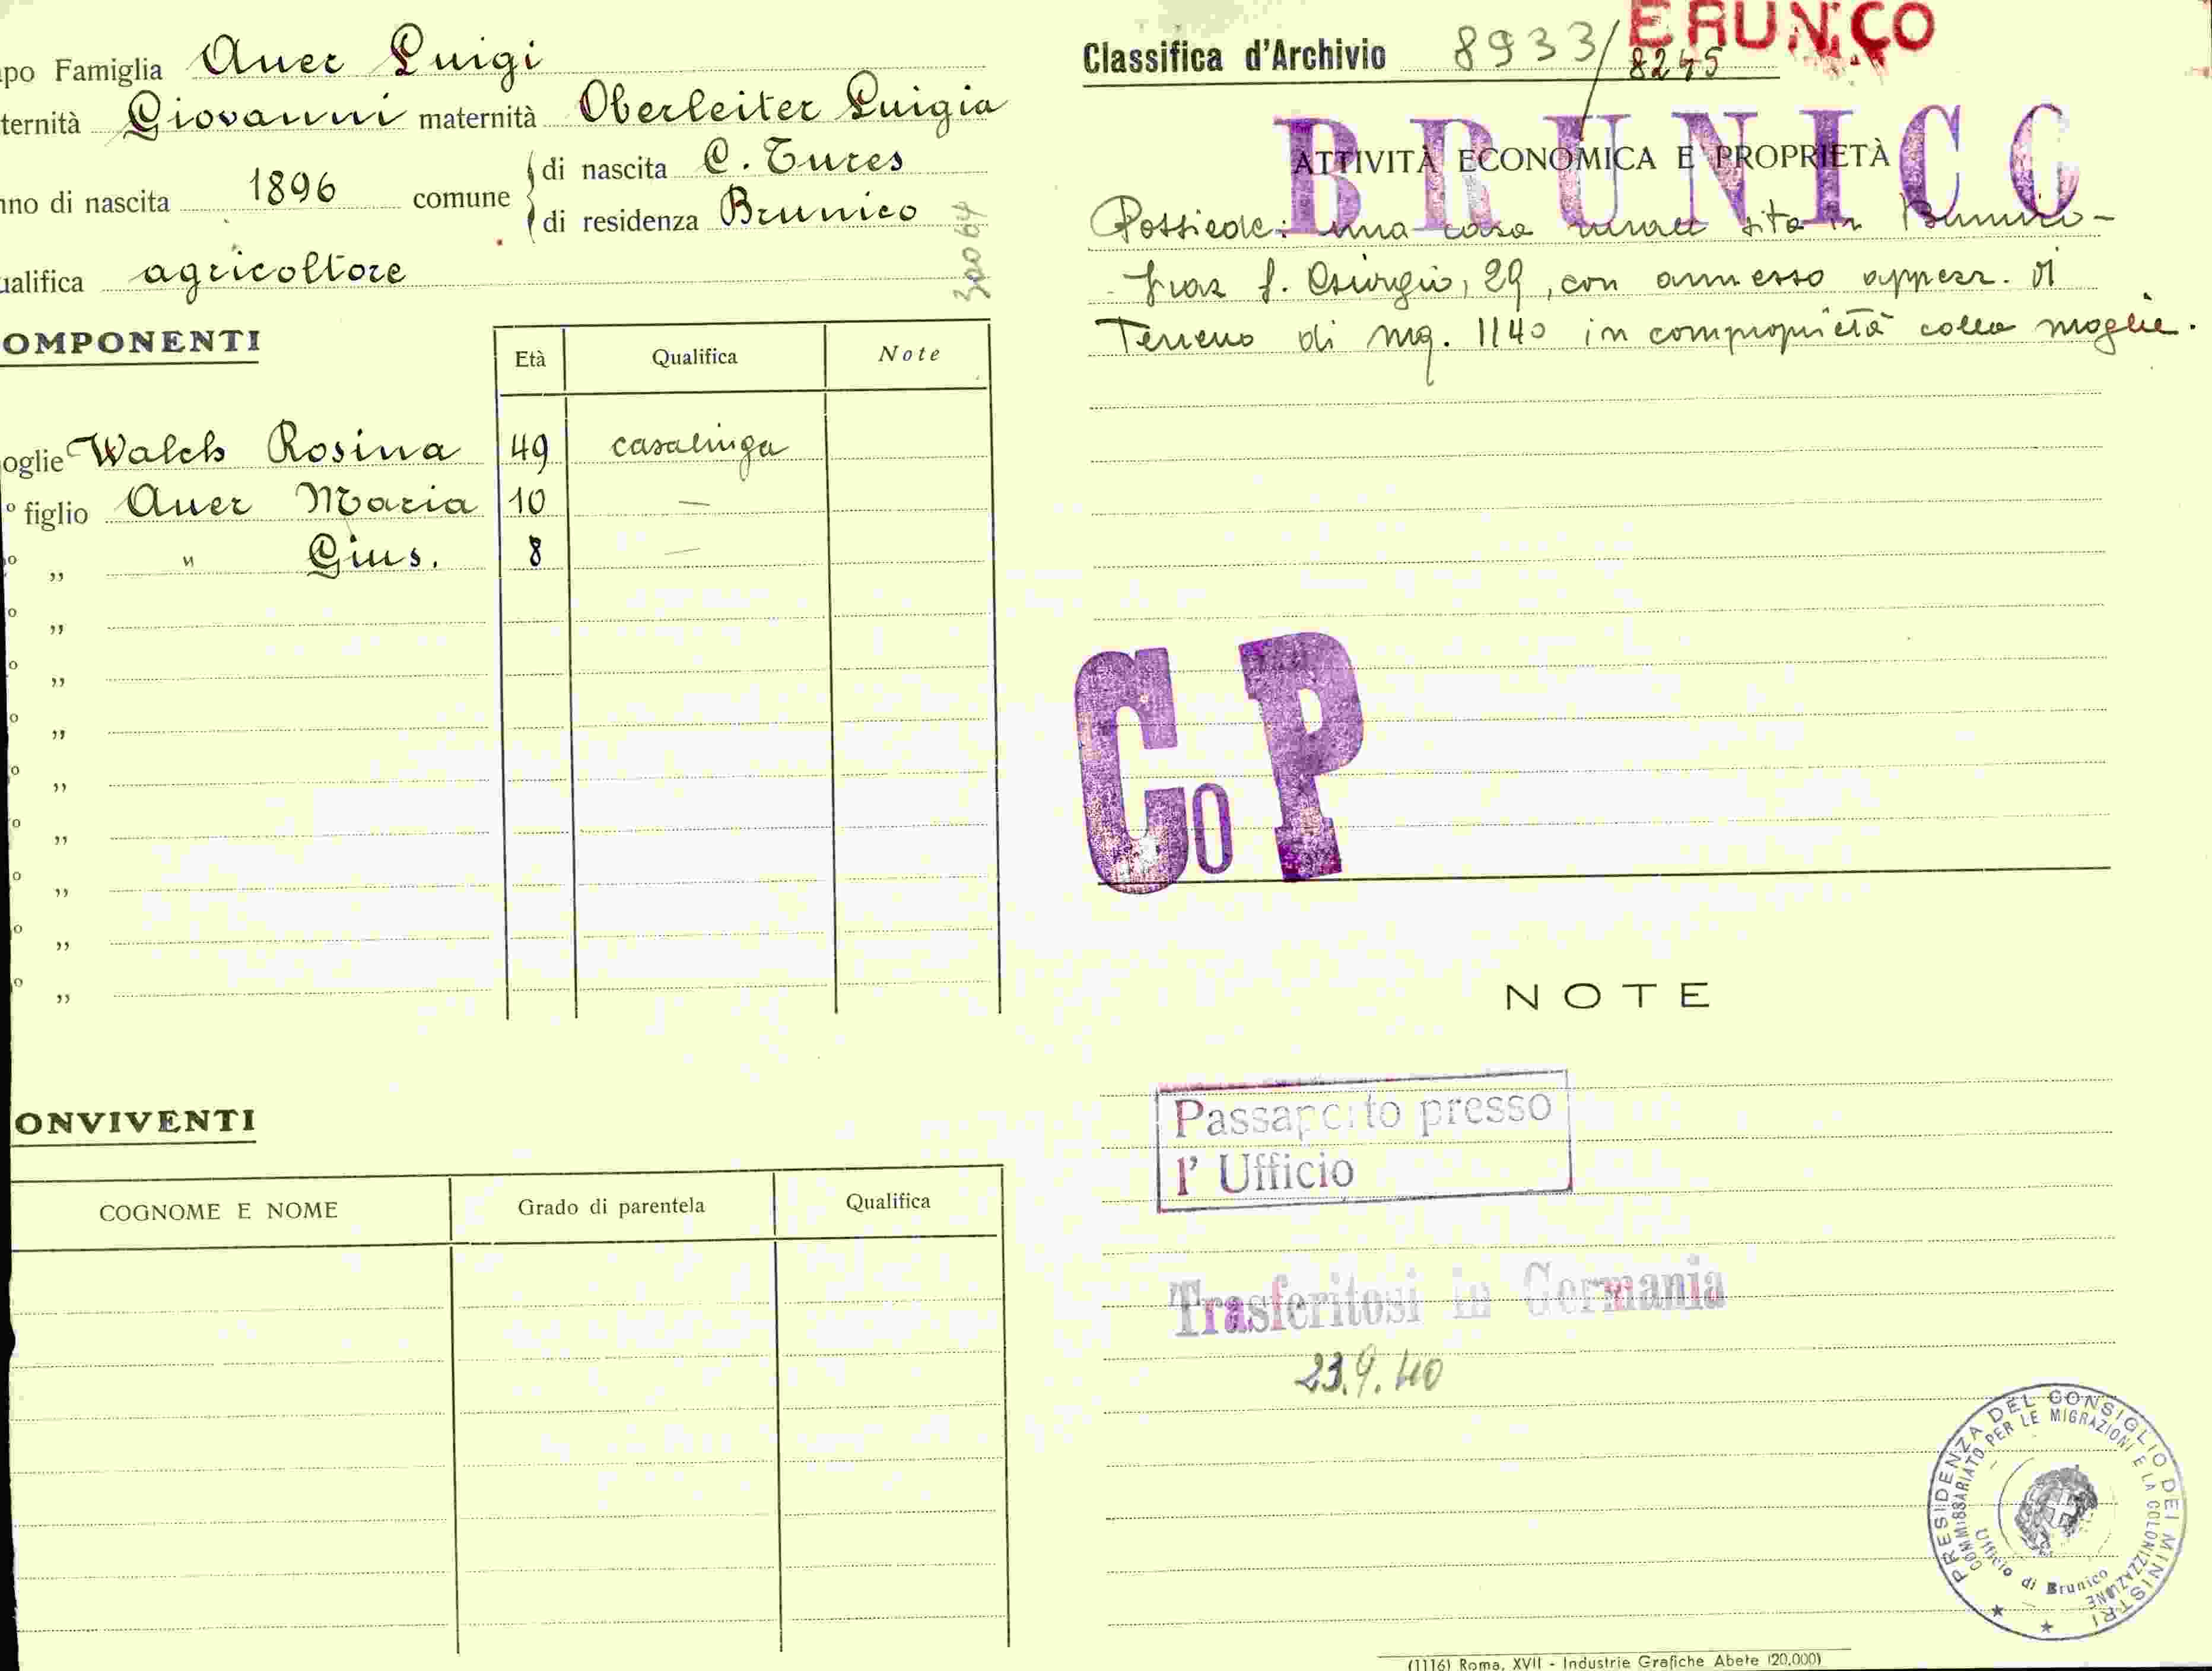 po Famiglia Auer Luigi
ternità Giovanni maternità Oberleiter Luigia
nno di nascita 1896 comune di nascita C. Tures
di residenza Brunico
ualifica agricoltore
30064
OMPONENTI
Età Qualifica Note
oglie Walch Rosina 49 casalinga
º figlio Auer Maria 10 —
º „ " Gius. 8 —
º „
º „
º „
º „
º „
º „
º „
º „
ONVIVENTI
COGNOME E NOME Grado di parentela Qualifica
BRUNICO
Classifica d'Archivio 8933/8245
BRUNICO
ATTIVITÀ ECONOMICA E PROPRIETÀ
Possiede: una casa rurale sita in Brunico-
fraz S. Giorgio, 29, con annesso appezz. di
Terreno di mq. 1140 in comproprietà colla moglie.
Co P
NOTE
Passaporto presso
l' Ufficio
Trasferitosi in Germania
23.9.40
PRESIDENZA DEL CONSIGLIO DEI MINISTRI
COMMISSARIATO PER LE MIGRAZIONI E LA COLONIZZAZIONE
Ufficio di Brunico
(1116) Roma, XVII - Industrie Grafiche Abete (20.000)